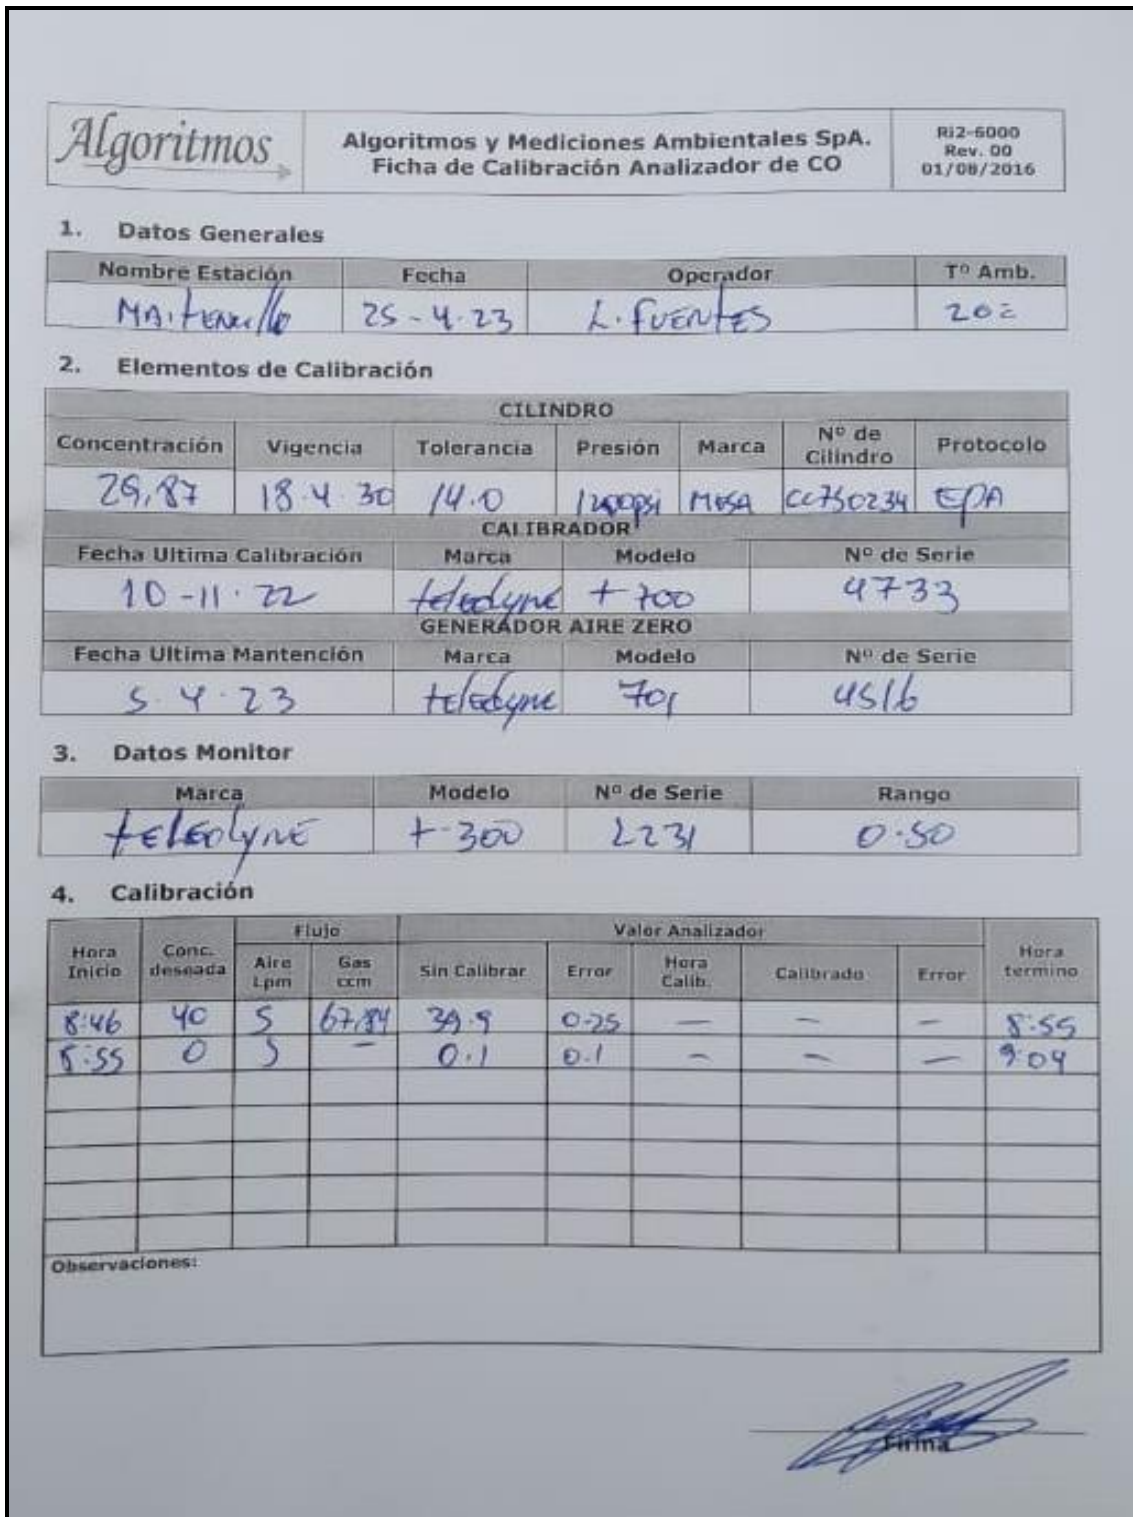 Algoritmos
Algoritmos y Mediciones Ambientales SpA.
Ficha de Calibración Analizador de CO
Ri2-6000
Rev. 00
01/08/2016
1. Datos Generales
Nombre Estación Fecha Operador Tº Amb.
MAitencillo 25-4-23 L. FUENTES 20
2. Elementos de Calibración
CILINDRO
Concentración Vigencia Tolerancia Presión Marca Nº de Cilindro Protocolo
29,87 18.4.30 14.0 1200psi MESA CC750234 EPA
CALIBRADOR
Fecha Ultima Calibración Marca Modelo Nº de Serie
10-11-22 teledyne t 700 4733
GENERADOR AIRE ZERO
Fecha Ultima Mantención Marca Modelo Nº de Serie
5.4.23 teledyne 701 4516
3. Datos Monitor
Marca Modelo Nº de Serie Rango
teledyne t-300 2231 0-50
4. Calibración
Flujo Valor Analizador
Hora Inicio Conc. deseada Aire Lpm Gas ccm Sin Calibrar Error Hora Calib. Calibrado Error Hora termino
8:46 40 5 67,84 39.9 0.25 — — — 8:55
8:55 0 5 — 0.1 0.1 — — — 9:04
Observaciones:
Firma